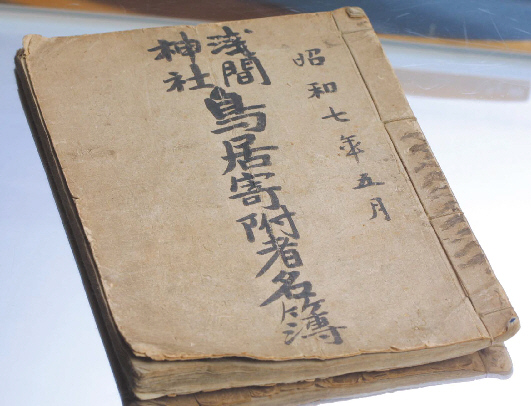 昭和七年五月
浅間
神社
鳥居寄附者名簿